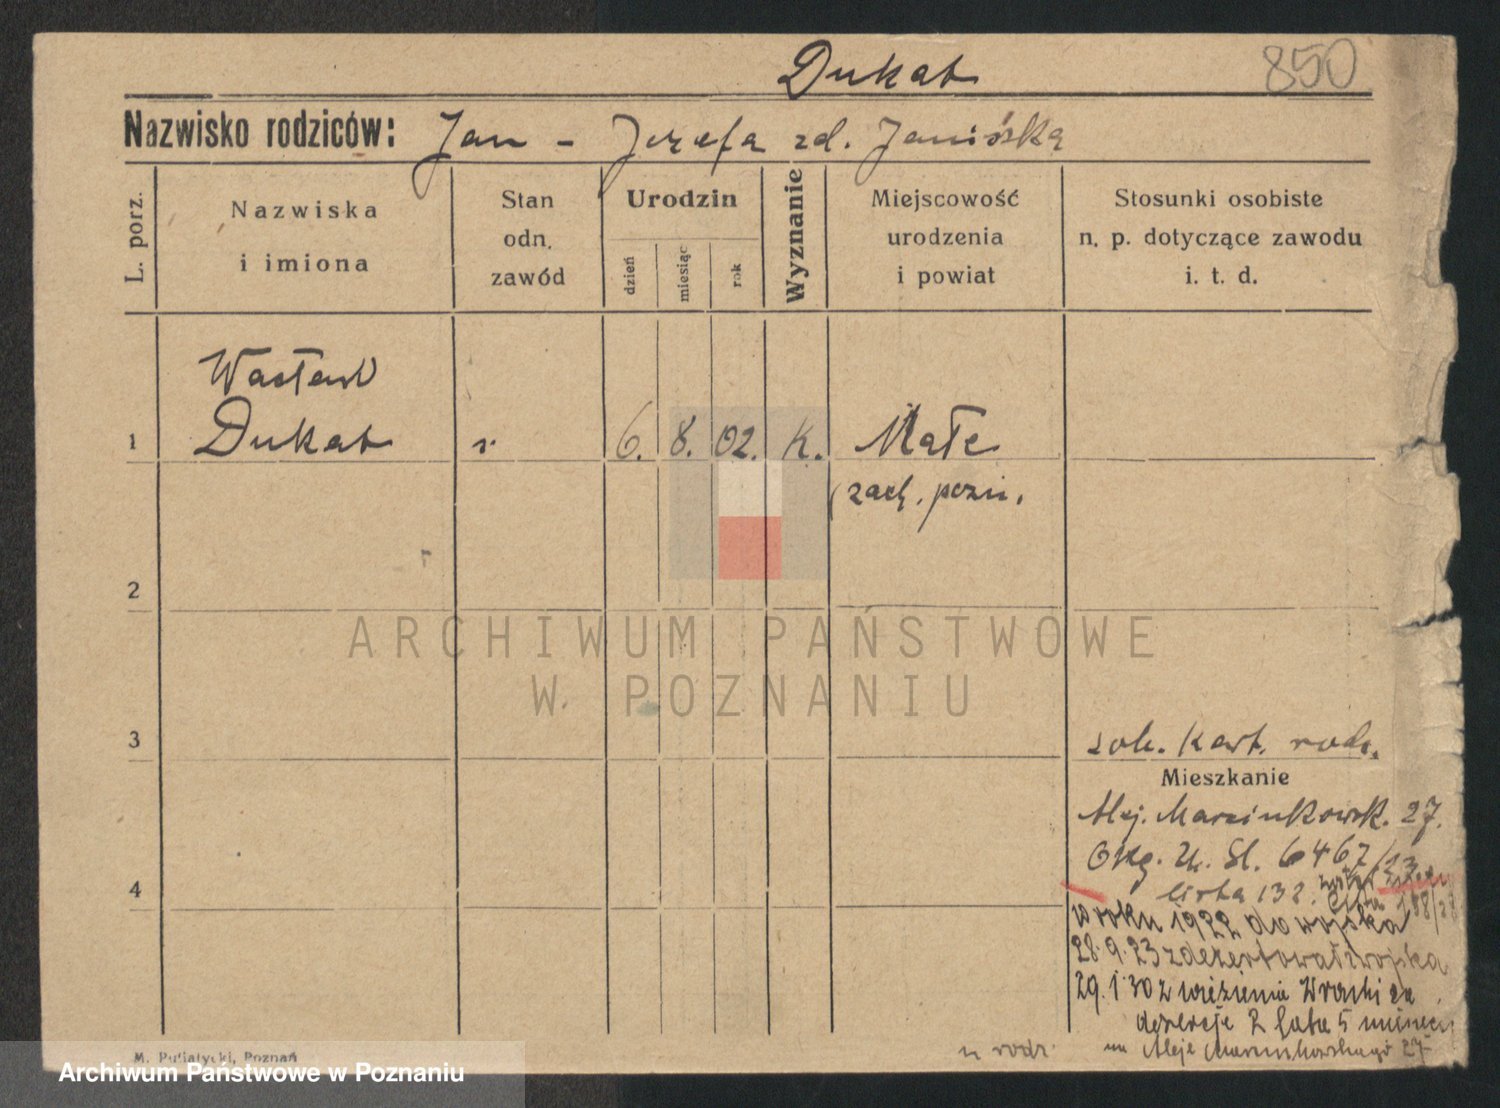 Dukat 850
Nazwisko rodziców: Jan - Józefa zd. Janióska
L. porz.
Nazwiska
i imiona
Stan
odn.
zawód
Urodzin
dzień
miesiąc
rok
Wyznanie
Miejscowość
urodzenia
i powiat
Stosunki osobiste
n. p. dotyczące zawodu
i. t. d.
Wacław
1 Dukat 6. 8. 02. K. Małe
zach. pozn.
2
ARCHIWUM PAŃSTWOWE
W POZNANIU
3
zob. Kart. rodz.
Mieszkanie
Alej. Marcinkowsk. 27.
Okg. U. Sl. 6467/23
4
lista 132.
w roku 1922 do wojska
28.9.23 zdezertował z wojska
29.1.30 z więzienia Wronki za
dezercje 2 lata 5 miniecy
u rodz. na Aleje Marcinkowskiego 27
M. Putiatycki, Poznań
Archiwum Państwowe w Poznaniu